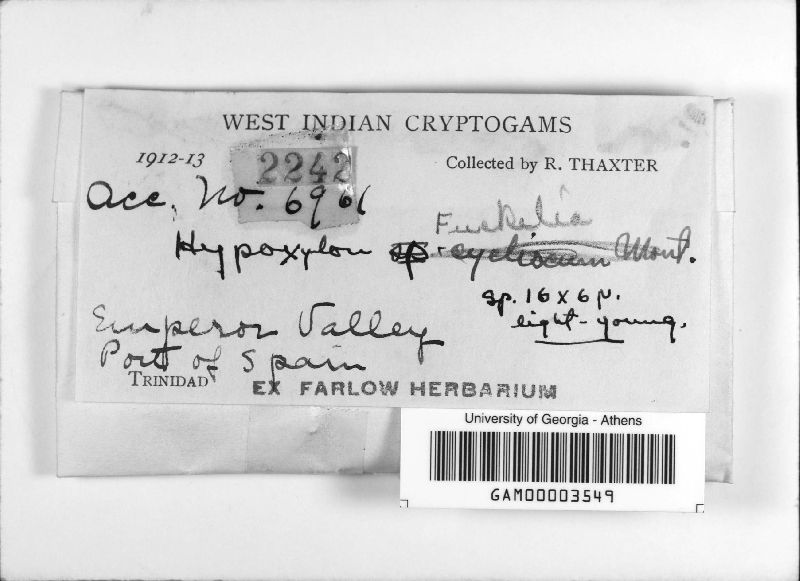 WEST INDIAN CRYPTOGAMS
1912-13 2242 Collected by R. THAXTER
Acc. No. 6961
Fuckelia
Hypoxylon sp. Mont.
sp. 16 x 6 µ.
light-young.
Emperor Valley
Port of Spain
TRINIDAD EX FARLOW HERBARIUM
University of Georgia - Athens
GAM00003549